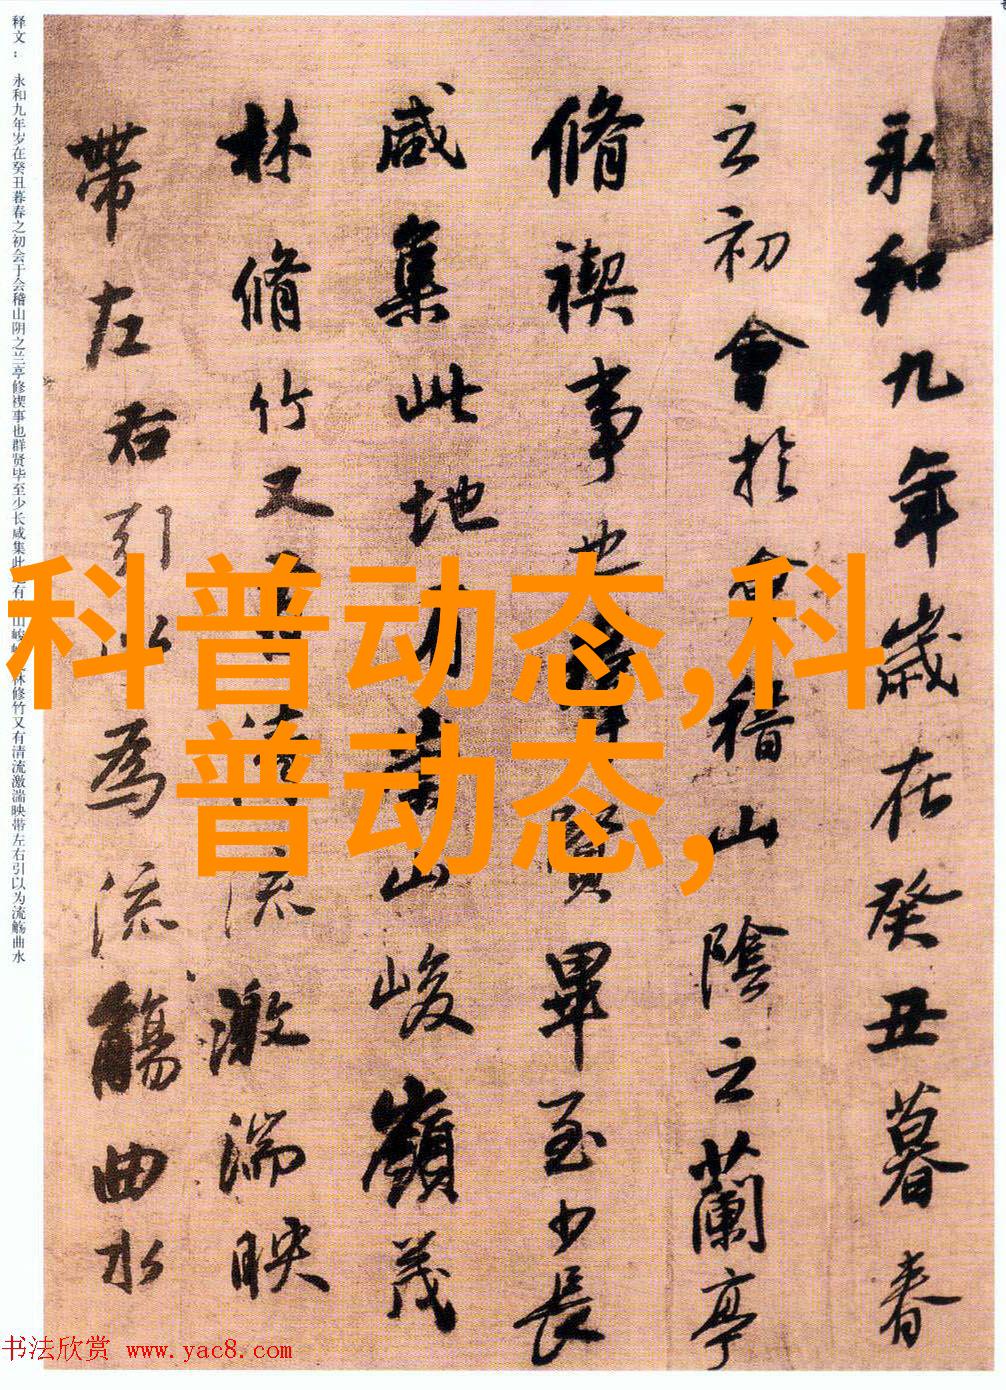 永和九年歲在癸丑暮春
之初會於會稽山陰之蘭亭
脩禊事也群賢畢至少長
咸集此地有崇山峻嶺茂
林脩竹又有清流激湍映
帶左右引以為流觴曲水
释文： 永和九年岁在癸丑暮春之初会于会稽山阴之兰亭修禊事也群贤毕至少长咸集此有山峻林修竹又有清流激湍映带左右引以为流觞曲水
科普动态,科
普动态,
书法欣赏 www.yac8.com